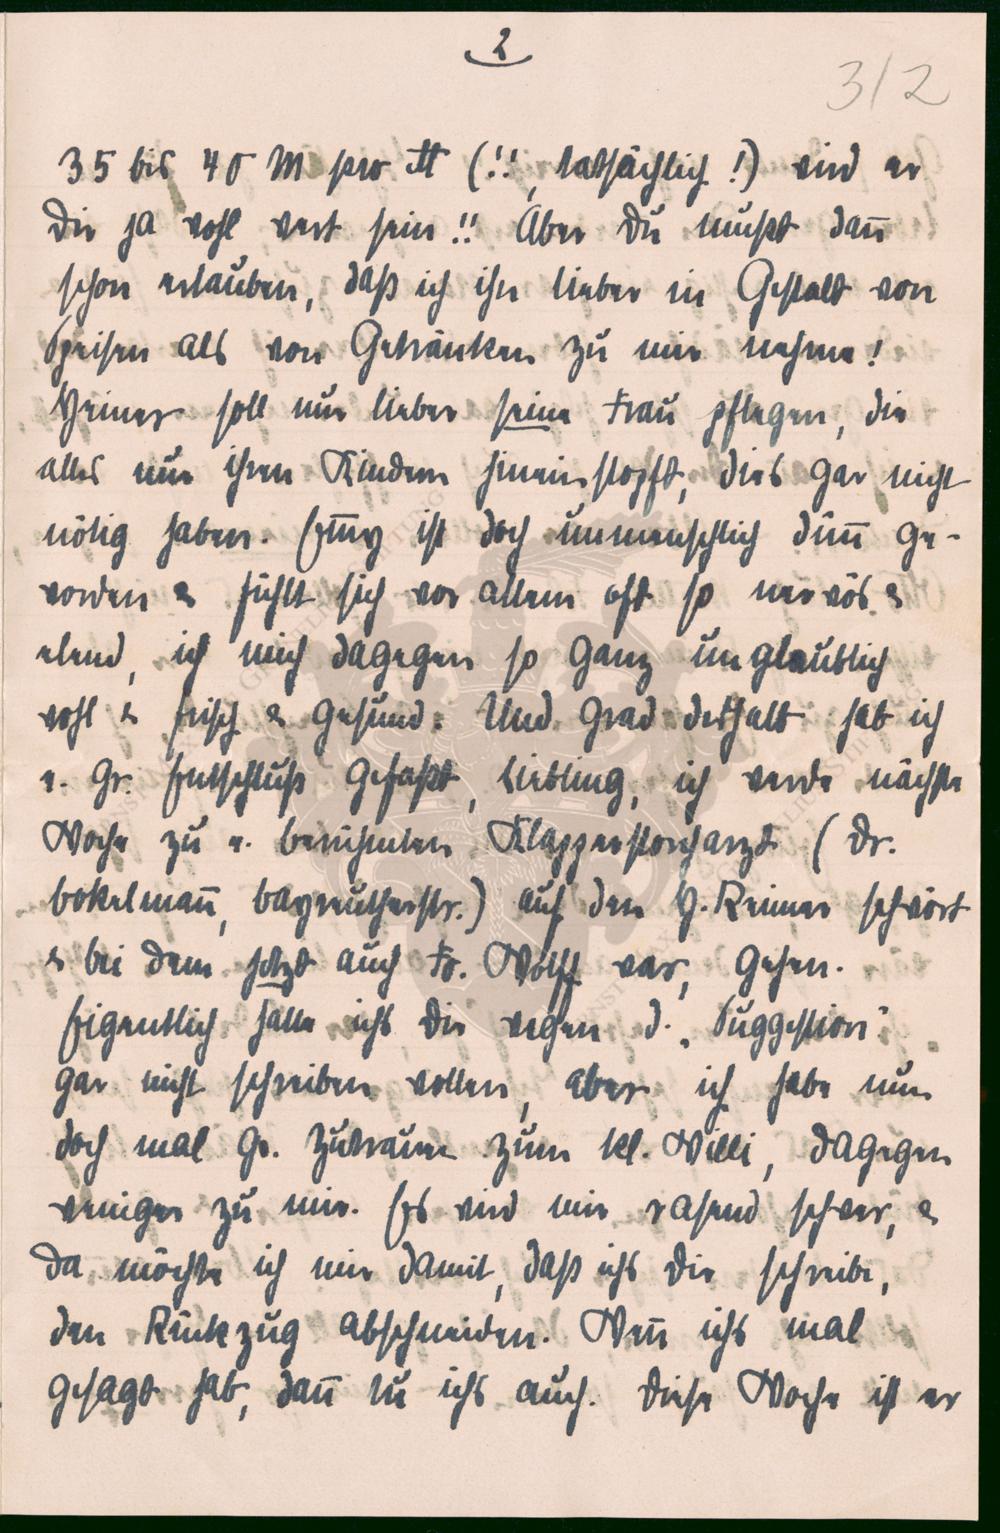 2
312
35 bis 40 M pro ℔ (!!, tatsächlich!) wird er
Dir ja wohl wert sein!! Aber Du mußt dañ
schon erlauben, daß ich ihn lieber in Gestalt von
Speisen als von Getränken zu mir nehme!
Heiner soll nur lieber seine Frau pflegen, die
alles nur ihren Kindern hineinstopft, dies gar nicht
nötig haben. Em̃y ist doch unmenschlich düñ ge-
worden & fühlt sich vor allem oft so nervös &
elend, ich mich dagegen so ganz unglaublich
wohl & frisch & gesund. Und grad deshalb hab ich
e. gr. Entschluß gefaßt, Liebling, ich werde nächste
Woche zu e. berühmten Klapperstorcharzt (Dr.
Bokelmañ, Bayreutherstr.) auf den H. Reimer schwört
& bei dem jetzt auch Fr. Wolff war, gehen.
Eigentlich hatte ichs Dir wegen d. „Suggestion"
gar nicht schreiben wollen, aber ich habe nun
doch mal gr. Zutrauen zum kl. Willi, dagegen
weniger zu mir. Es wird mir rasend schwer, &
da möchte ich mir damit, daß ichs Dir schreibe,
den Rückzug abschneiden. Weñ ichs mal
gesagt hab, dañ tu ichs auch. Diese Woche ist er